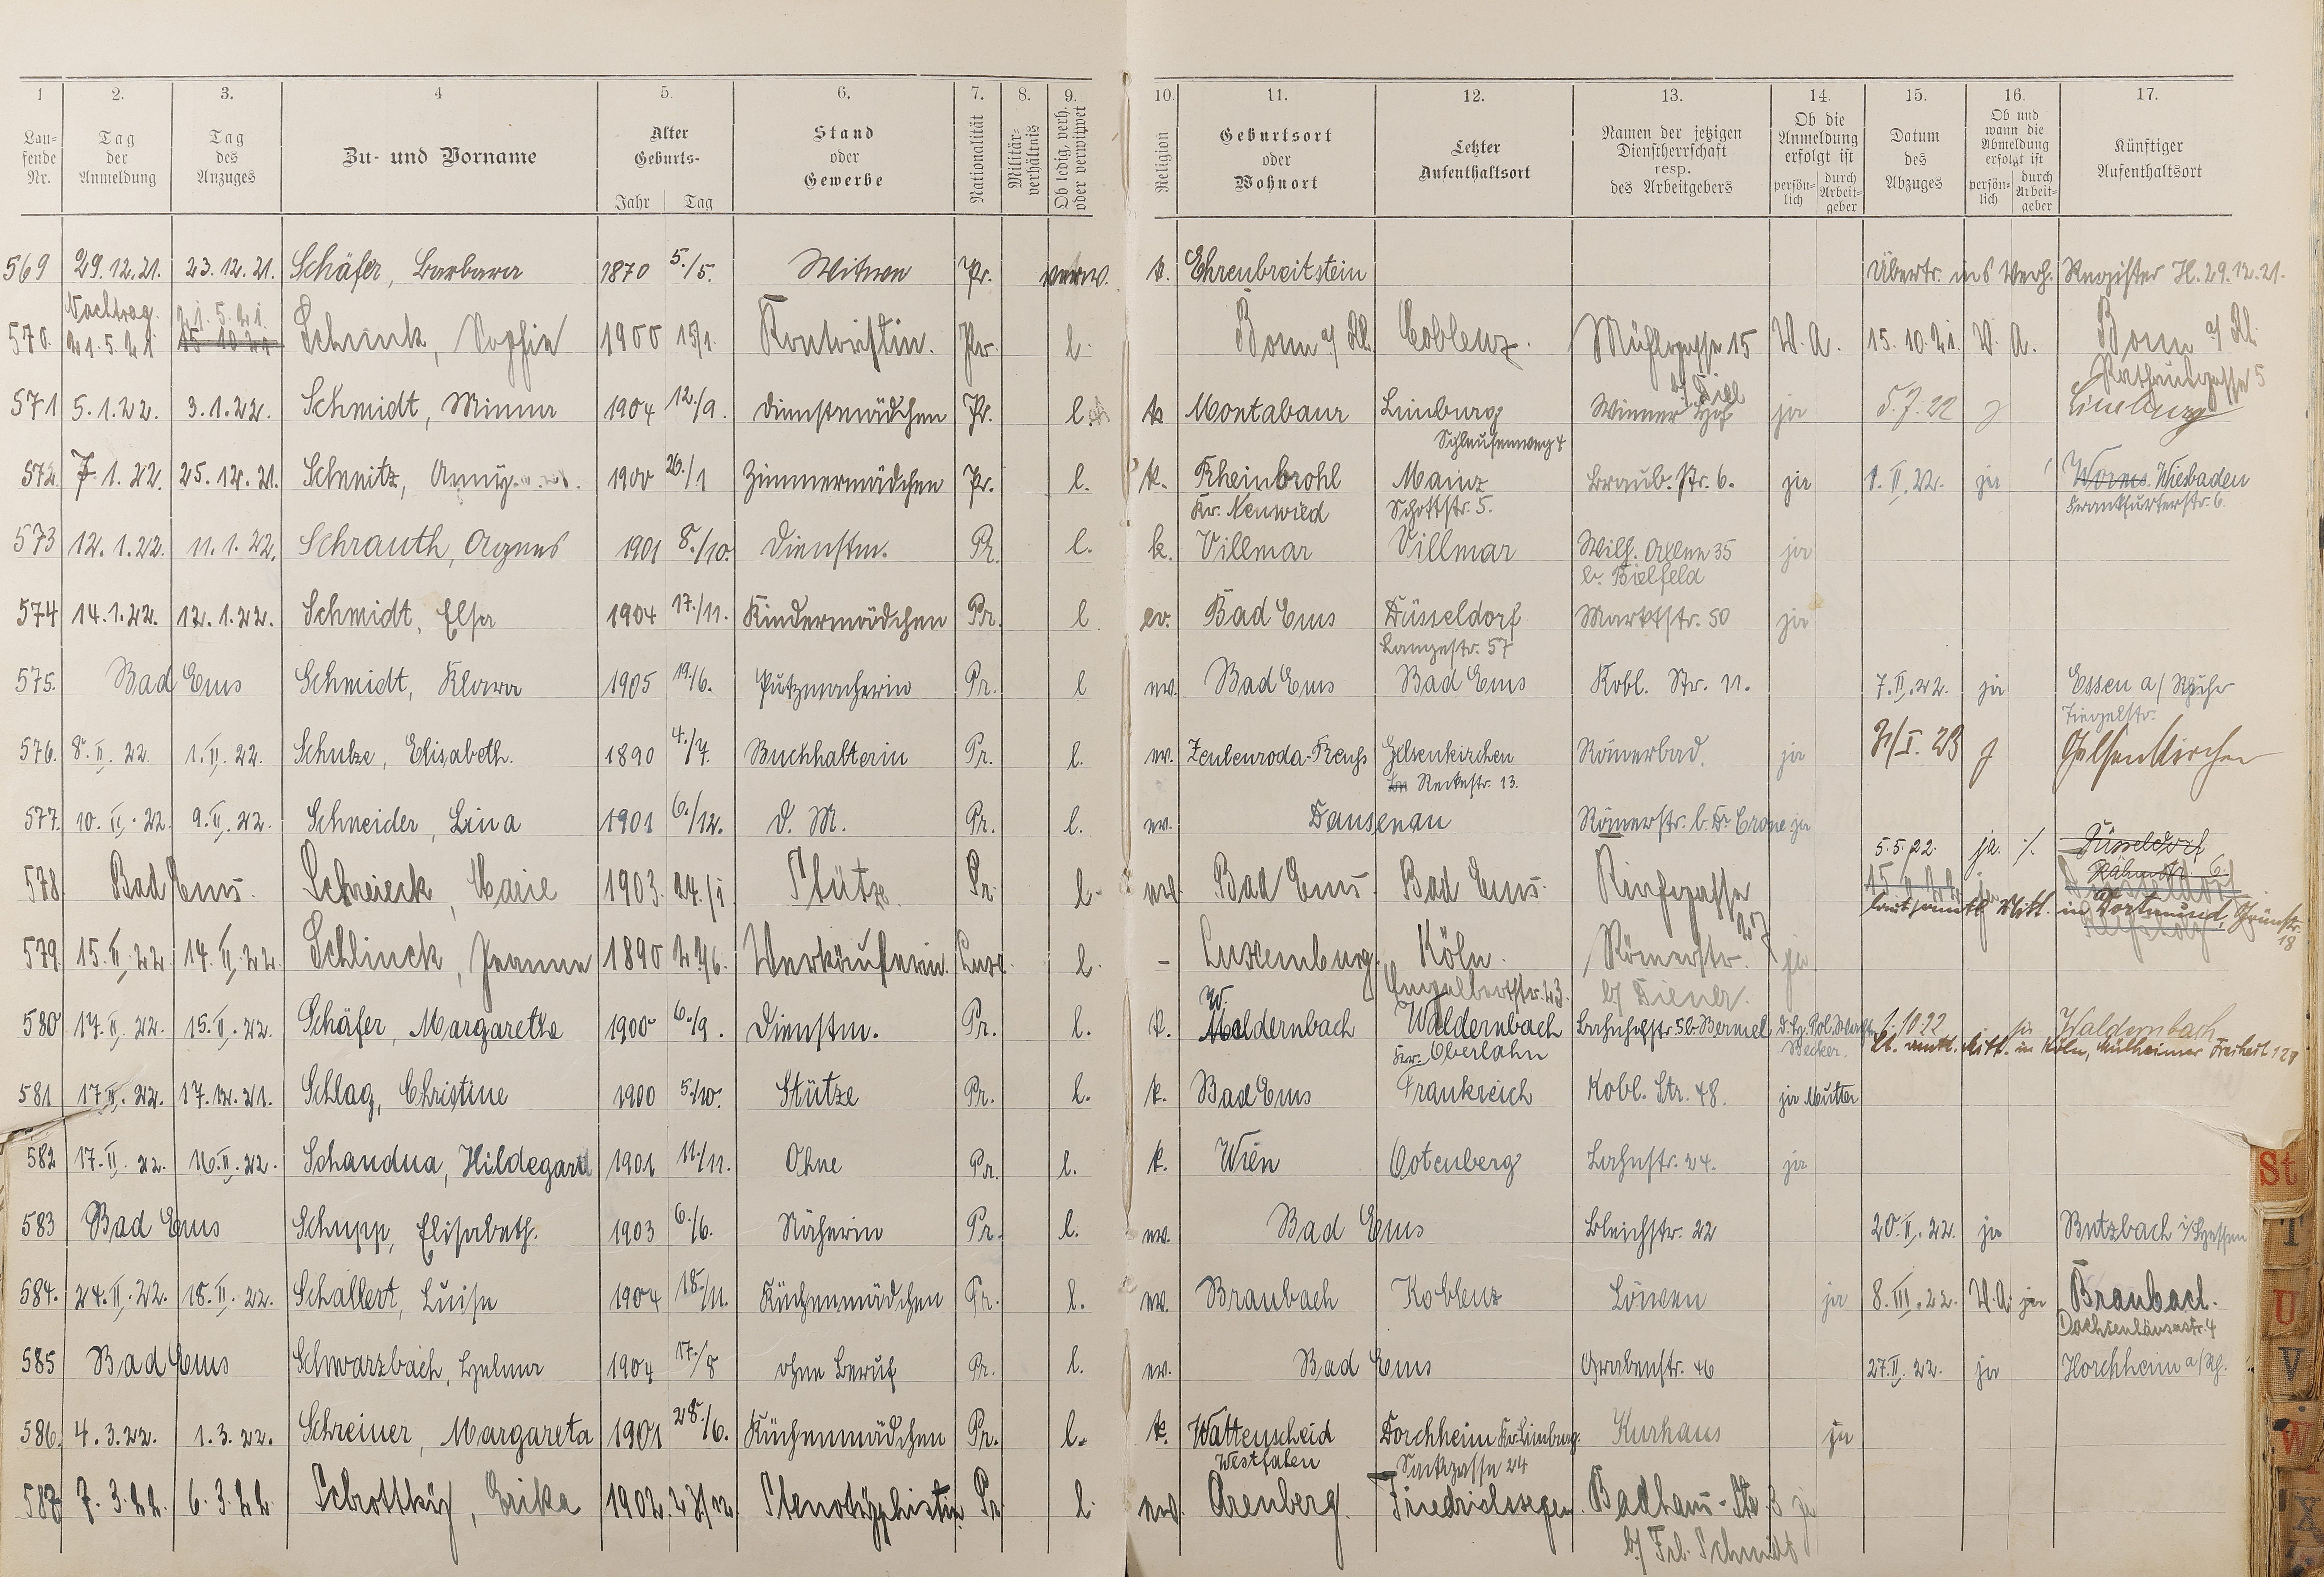 1 2. 3. 4 5. 6. 7. 8. 9. 10. 11. 12. 13. 14. 15. 16. 17.
Lau=fende Nr. Tag der Anmeldung Tag des Anzuges Zu- und Vorname Alter Geburts- Jahr Tag Stand oder Gewerbe Nationalität Militär-verhältnis Ob ledig, verh. oder verwitwet Religion Geburtsort oder Wohnort Letzter Aufenthaltsort Namen der jetzigen Dienstherrschaft resp. des Arbeitgebers Ob die Anmeldung erfolgt ist persön=lich durch Arbeit=geber Datum des Abzuges Ob und wann die Abmeldung erfolgt ist persön=lich durch Arbeit=geber Künftiger Aufenthaltsort
569 29.12.21. 23.12.21. Schäfer, Barbara 1870 5./5. Witwe Pr. verw. k. Ehrenbreitstein Übertr. ins Verh. Register H. 29.12.21.
Nachtrag. 21.5.21.
570. 21.5.21 15 10 21 Schenck, Sophie 1900 15/1. Kontoristin. Pr. l. Bonn a/Rh. Coblenz. Mühlgasse 15 V. A. 15.10.21. V. A. Bonn a/Rh.
b/ Diel Rathausgasse 5
571 5.1.22. 3.1.22. Schmidt, Minna 1904 12./9. Dienstmädchen Pr. l. k Montabaur Limburg Wiener Hof ja 5.7.22 j Limburg
Schleusenweg 4
572. 7.1.22. 25.12.21. Schmitz, Anny 1900 26./1 Zimmermädchen Pr. l. k. Rheinbrohl Mainz Braub. Str. 6. ja 1.II.22. ja Worms. Wiesbaden
Kr. Neuwied Schottstr. 5. Frankfurterstr. 6.
573 12.1.22. 11.1.22. Schrauth, Agnes 1901 8./10. Dienstm. Pr. l. k. Villmar Villmar Wilh. Allee 35 ja
b. Bielfeld
574 14.1.22. 12.1.22. Schmidt, Elsa 1904 17./11. Kindermädchen Pr. l. ev. Bad Ems Düsseldorf Marktstr. 50 ja
Langestr. 57
575. Bad Ems Schmidt, Klara 1905 19./6. Putzmacherin Pr. l ev. Bad Ems Bad Ems Kobl. Str. 11. 7.II.22. ja Essen a/Ruhr
Tiegelstr.
576. 8.II.22. 1.II.22. Schulze, Elisabeth. 1890 4./7. Buchhalterin Pr. l. ev. Zeulenroda-Reuß Gelsenkirchen Römerbad. ja I. 23 j Gelsenkirchen
Reckestr. 13.
577. 10.II.22. 9.II.22. Schneider, Lina 1901 6./12. D. M. Pr. l. ev. Dausenau Römerstr. b. Dr. Crone ja
5.5.22. ja. Düsseldorf
578. Bad Ems. Schreieck, Marie 1903. 24./1 Stütze. Pr. l. ev. Bad Ems. Bad Ems. Kirchgasse 15.II.22 ja Düsseldorf
27 laut amtl. Mitt. in Dortmund, Grünstr. 18
579. 15.II.22 14.II.22. Schlinck, Jeanne 1890 27/6. Verkäuferin. Luxe. l. – Luxemburg. Köln. Römerstr. ja
Engelbertstr. 23. b/ Diener.
580 17.II.22. 15.II.22. Schäfer, Margarethe 1900 6./9. Dienstm. Pr. l. k. Waldernbach Waldernbach Bahnhofstr. 5 b. Bermel Becker. 1.10 22 ja Waldernbach
Kr. Oberlahn lt. amtl. Mitt. in Köln, Mülheimer Freiheit 129
581 17.II.22. 17.12.21. Schlag, Christine 1900 5./10. Stütze Pr. l. k. Bad Ems Frankreich Kobl. Str. 48. ja Mutter
582 17.II.22. 16.II.22. Schandua, Hildegard 1901 11./11. Ohne Pr. l. k. Wien Cotenberg Lahnstr. 24. ja
583 Bad Ems Schupp, Elisabeth. 1903 6./6. Näherin Pr. l. ev. Bad Ems Bleichstr. 22 20.II.22. ja Butzbach i/Hessen
584. 24.II.22. 18.II.22. Schallert, Luise 1904 18./11. Küchenmädchen Pr. l. ev. Braubach Koblenz Löwen ja 8.III.22. V. A. ja Braubach.
Dachsenhäuserstr. 4
585 Bad Ems Schwarzbach, Helma 1904 17./8 ohne Beruf Pr. l. ev. Bad Ems Grabenstr. 46 27.II.22. ja Horchheim a/Rh.
586. 4.3.22. 1.3.22. Schreiner, Margareta 1901 28./6. Küchenmädchen Pr. l. k. Wattenscheid Dorchheim Kr. Limburg. Kurhaus ja
Westfalen Sackgasse 24
587 7.3.22. 6.3.22. Schrottky, Erika 1902. 23/12. Stenotypistin. Pr. l. ev. Arenberg. Friedrichssegen. Badhaus-Str. 3 ja
b/ Frl. Schmidt
St
T
U
V
W
X